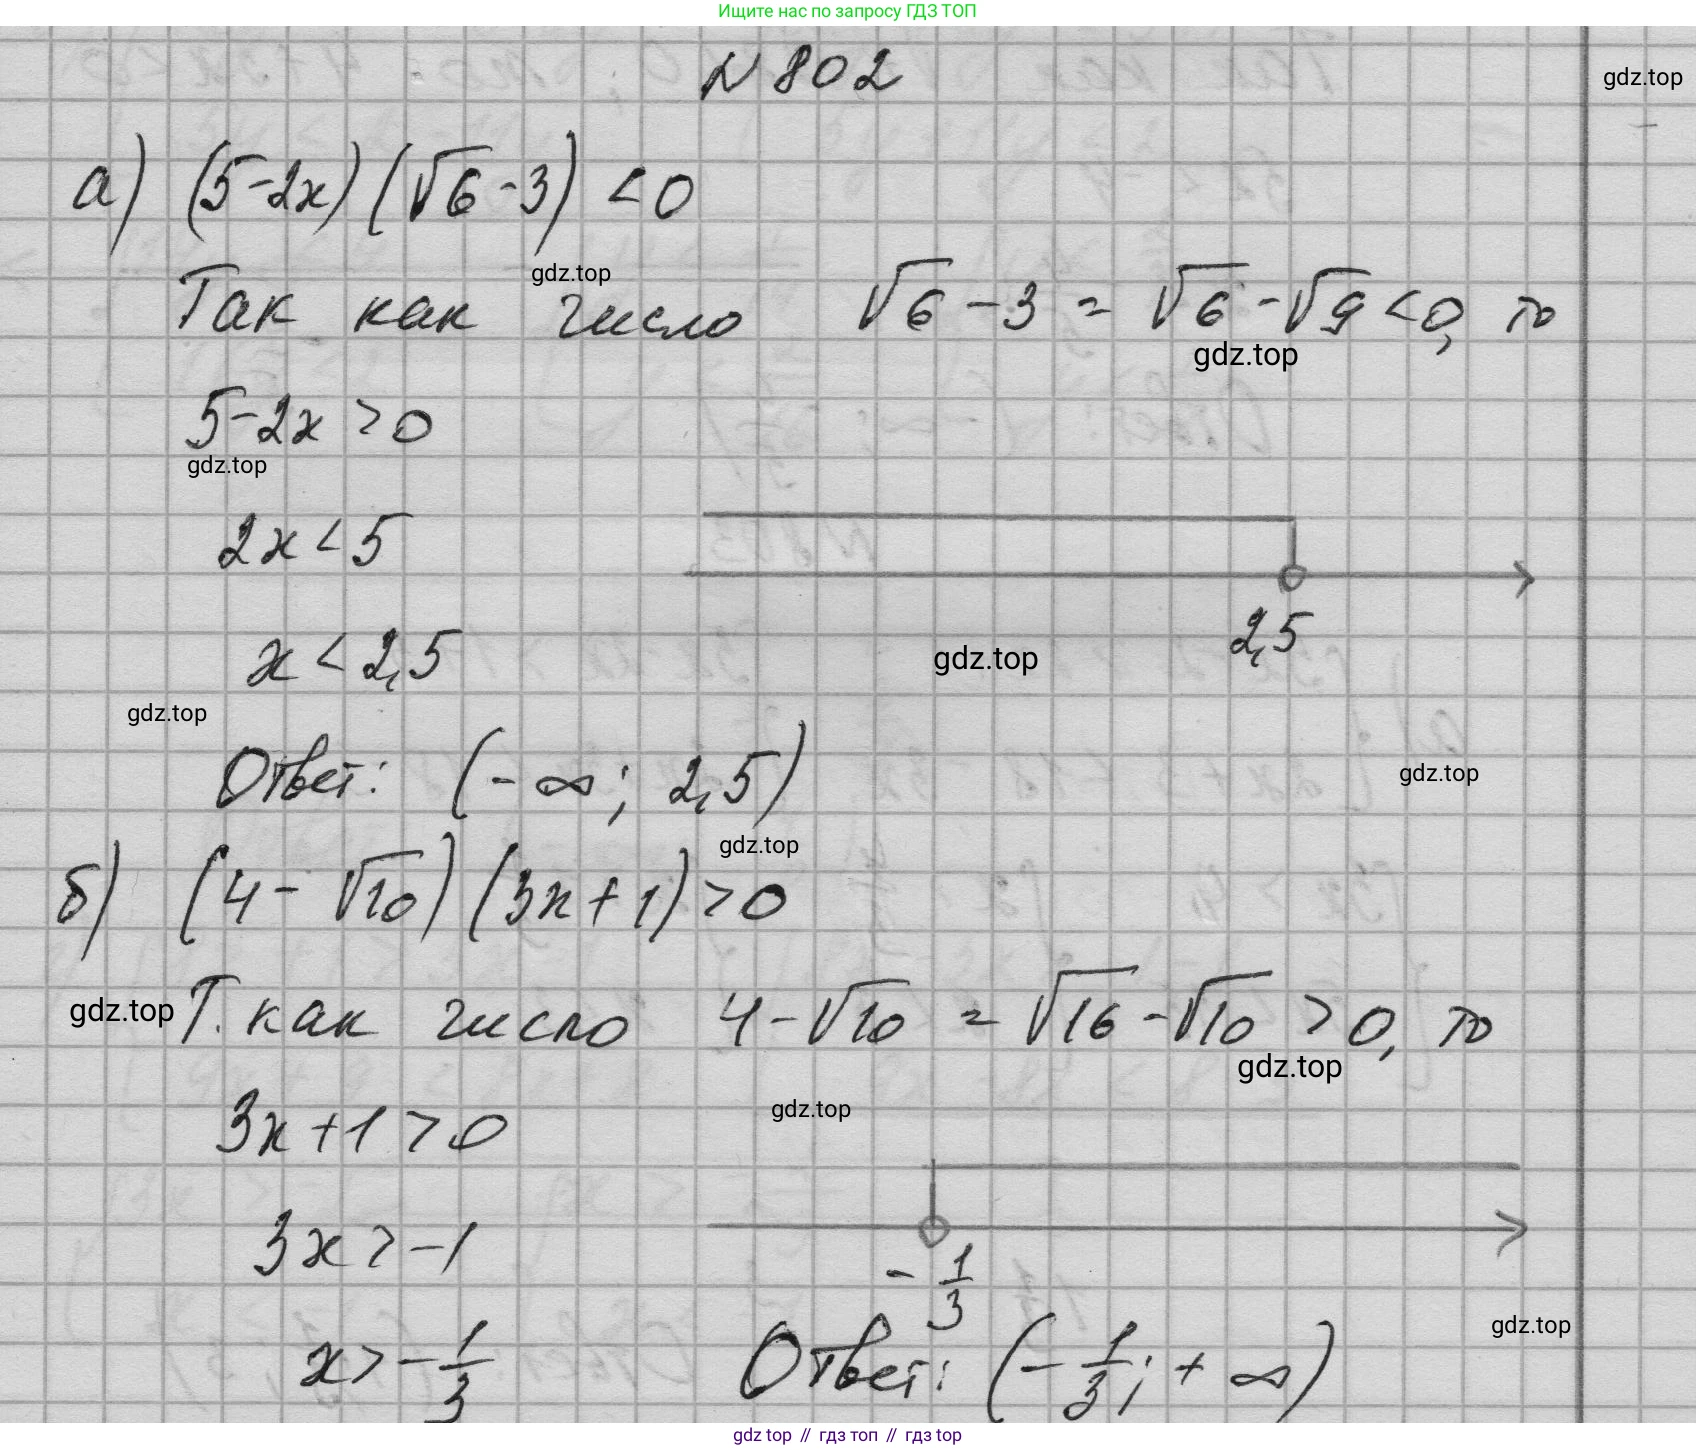 Ищите нас по запросу ГДЗ ТОП
N 802
gdz.top
а) (5-2x)(√6-3) <0
gdz.top
Так как число √6-3 = √6-√9<0, то
gdz.top
5-2x>0
gdz.top
2x<5
2,5
x<2,5
gdz.top
gdz.top
Ответ: (-∞; 2,5)
gdz.top
gdz.top
б) (4-√10)(3x+1)>0
gdz.top
Т. как число 4-√10 = √16-√10 >0, то
gdz.top
gdz.top
3x+1>0
3x>-1
-1/3
gdz.top
x>-1/3 Ответ: (-1/3; +∞)
gdz top // гдз топ // гдз top